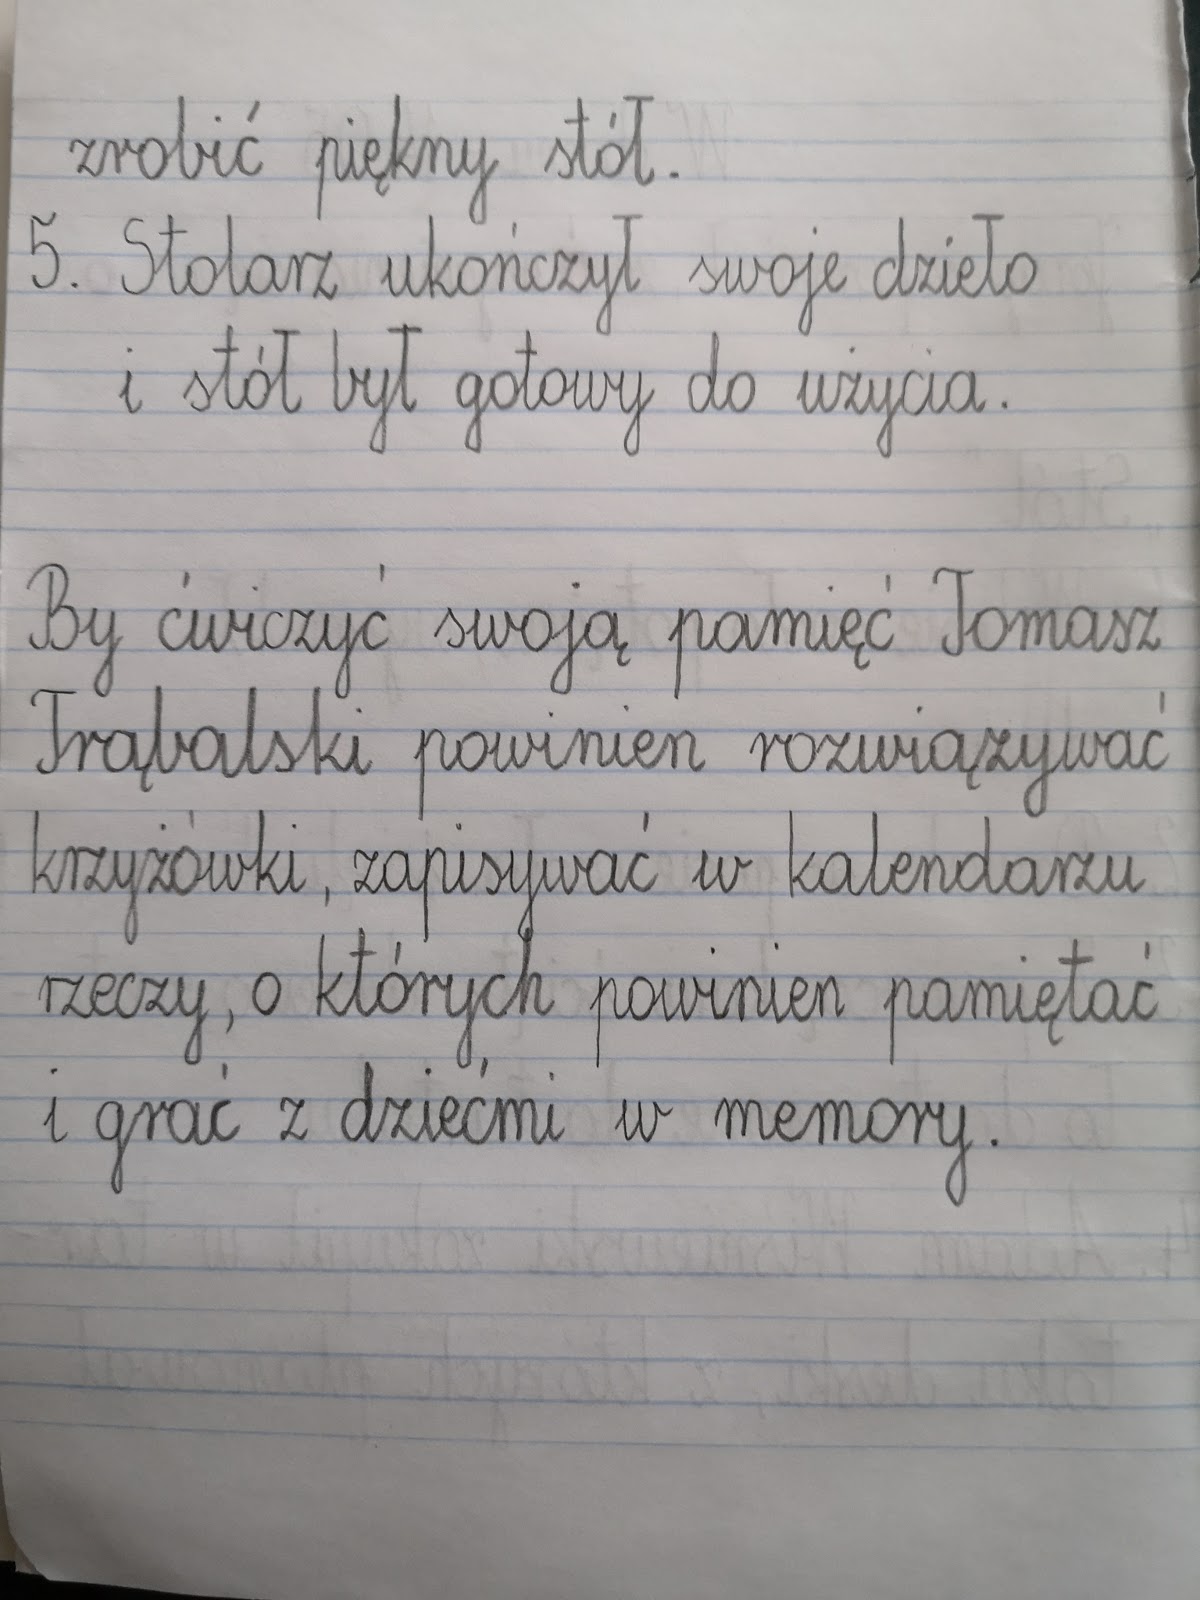 zrobić piękny stół.
5. Stolarz ukończył swoje dzieło
i stół był gotowy do użycia.
By ćwiczyć swoją pamięć Tomasz
Trąbalski powinien rozwiązywać
krzyżówki, zapisywać w kalendarzu
rzeczy, o których powinien pamiętać
i grać z dziećmi w memory.